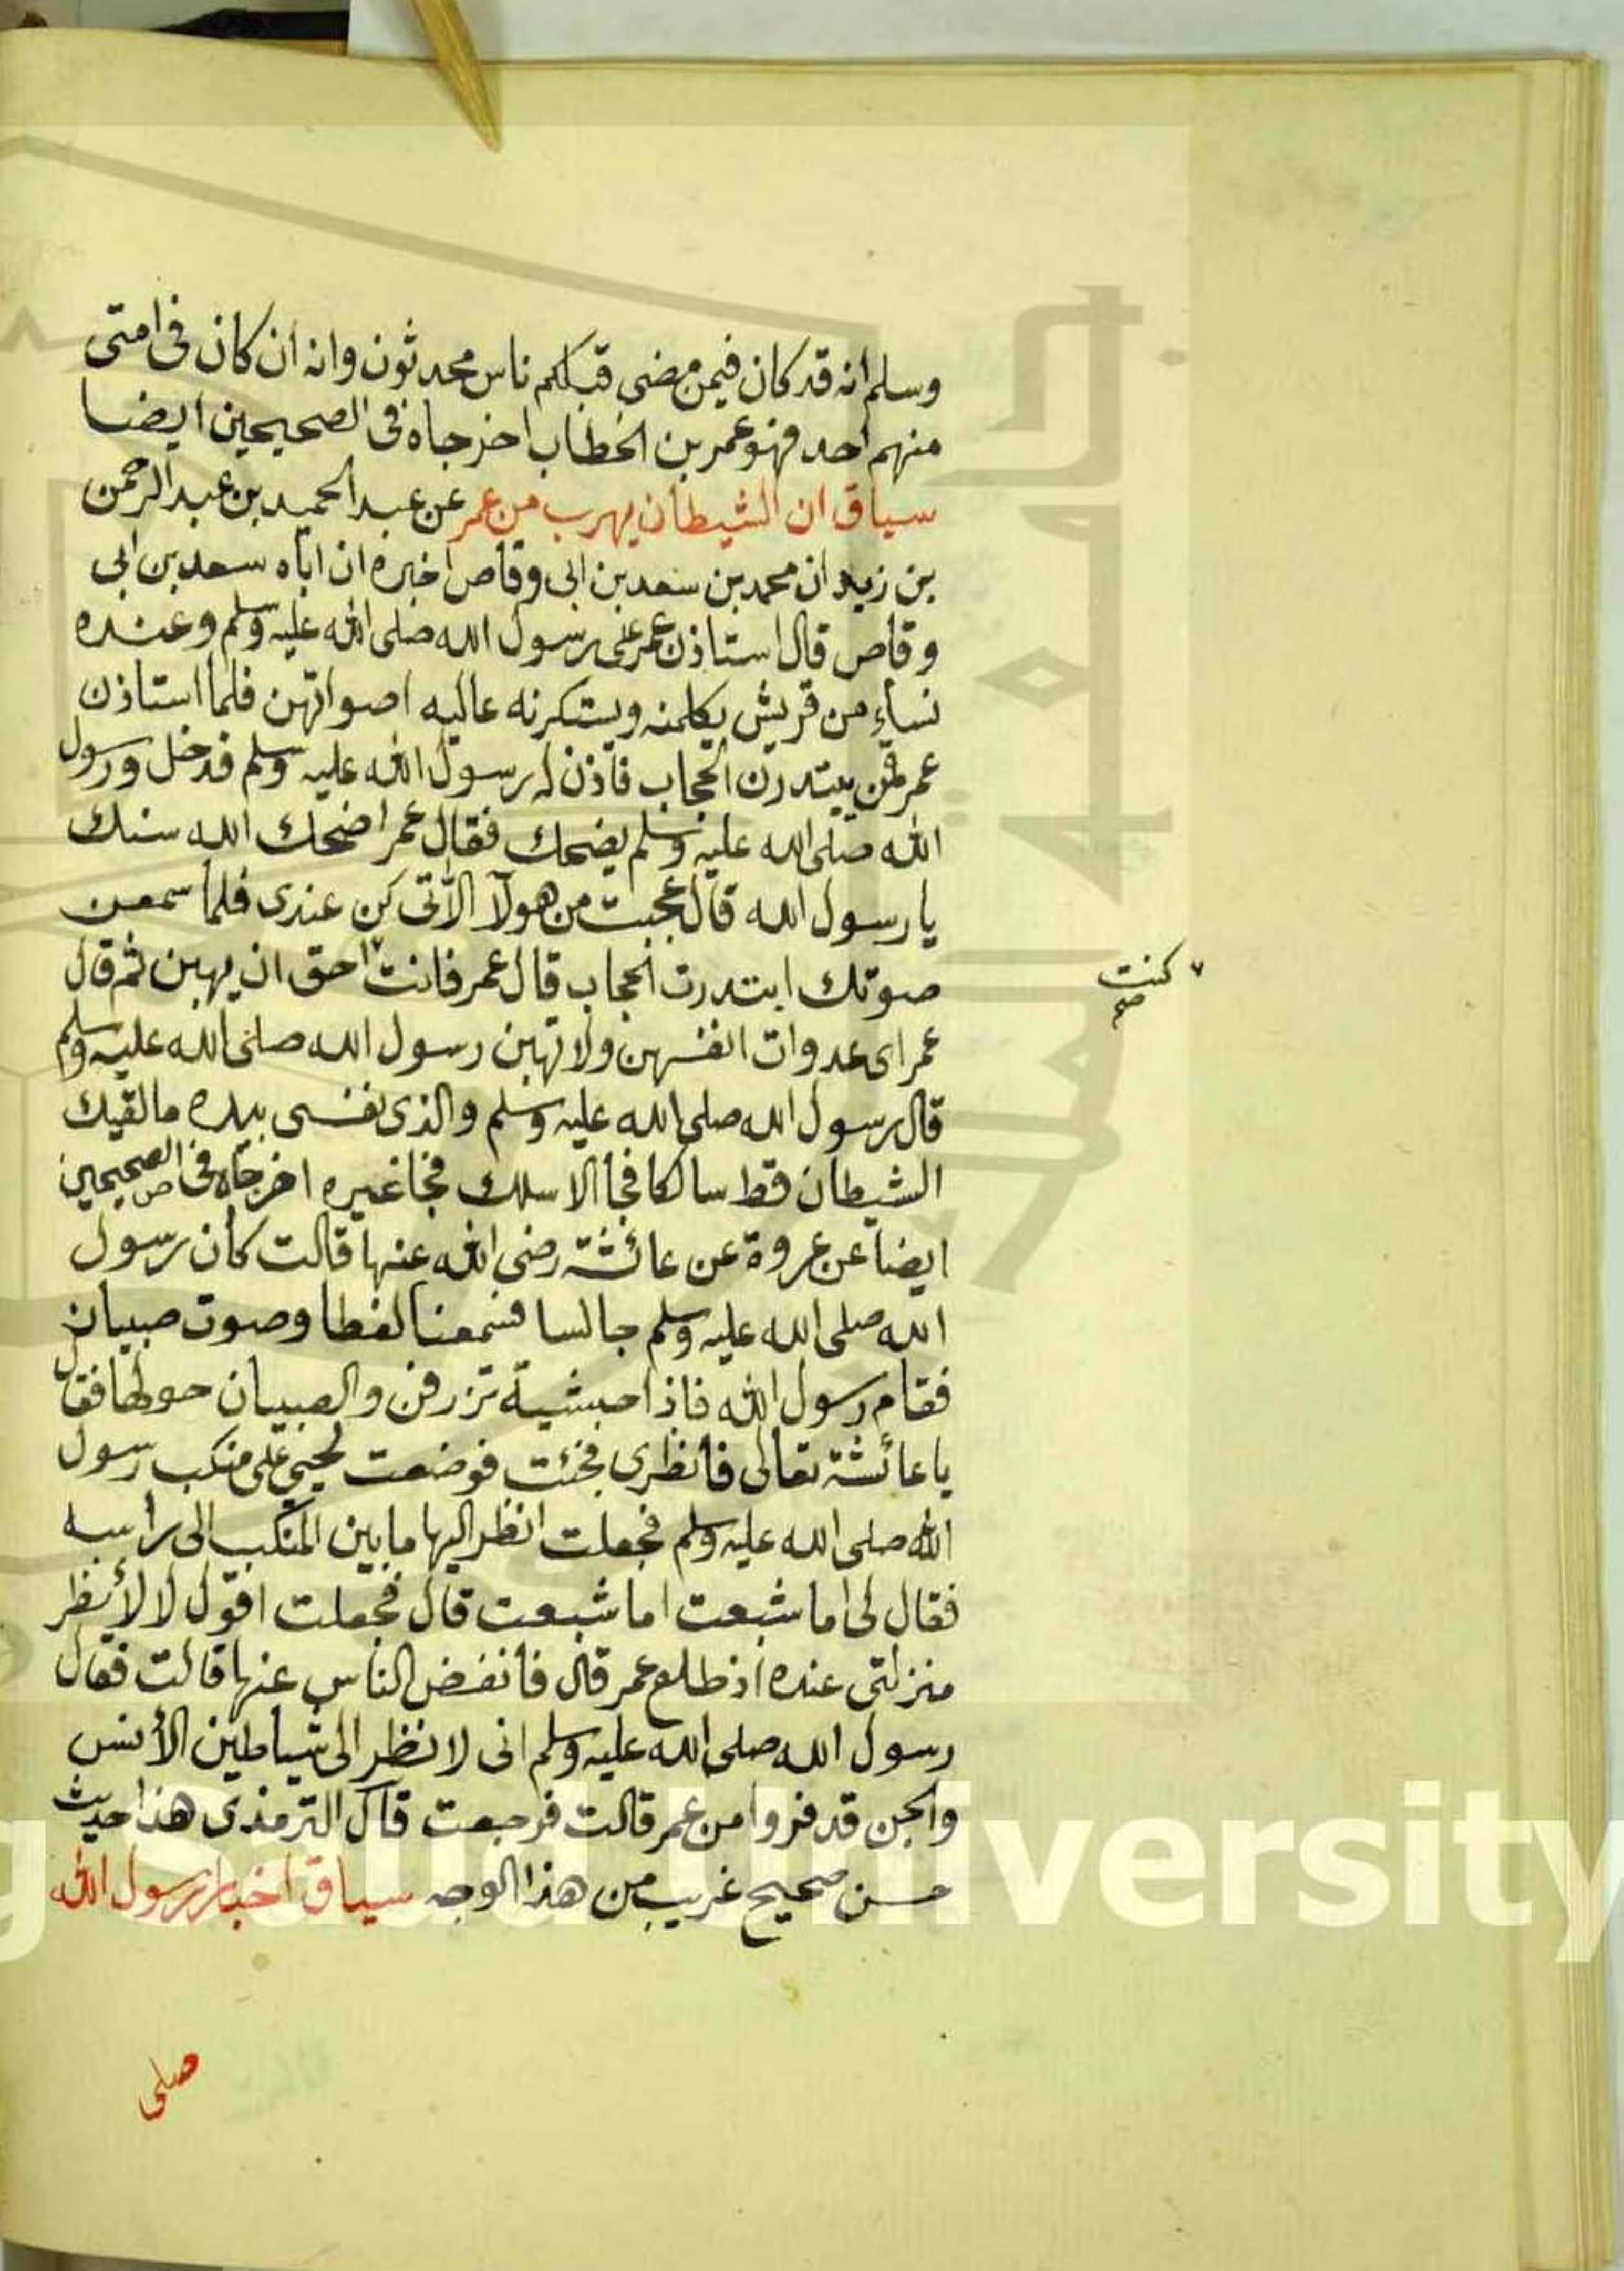 وسلم انه قد كان فيمن مضى قبلكم ناس محدثون وانه ان كان فى امتى
منهم احد فهو عمر بن الخطاب اخرجاه فى الصحيحين ايضا
سياق ان الشيطان يهرب من عمر عن عبد الحميد بن عبد الرحمن
بن زيد ان محمد بن سعد بن ابى وقاص اخبره ان اباه سعد بن ابى
وقاص قال استاذن عمر على رسول الله صلى الله عليه وسلم وعنده
نساء من قريش يكلمنه ويستكثرنه عاليه اصواتهن فلما استاذن
عمر قمن يبتدرن الحجاب فاذن له رسول الله عليه وسلم فدخل ورسول
الله صلى الله عليه وسلم يضحك فقال عمر اضحك الله سنك
يا رسول الله قال عجبت من هولآ الاتى كن عندى فلما سمعن
صوتك ابتدرن الحجاب قال عمر فانت ٧ احق ان يهبن ثم قال
٧ كنت صح
عمر اى عدوات انفسهن ولا تهبن رسول الله صلى الله عليه وسلم
قال رسول الله صلى الله عليه وسلم والذى نفسى بيده مالقيك
الشيطان قط سالكا فجا الا سلك فجا غيره اخرجاه فى الصحيحين
ايضا عن عروة عن عائشة رضى الله عنها قالت كان رسول
الله صلى الله عليه وسلم جالسا فسمعنا لغطا وصوت صبيان
فقام رسول الله فاذا حبشية تزرفن والصبيان حولها فقال
يا عائشة تعالى فانظرى فجئت فوضعت لحيي على منكب رسول
الله صلى الله عليه وسلم فجعلت انظر اليها ما بين المنكب الى راسه
فقال لى اما شبعت اما شبعت قال فجعلت اقول لا لأنظر
منزلتى عنده اذ طلع عمر قال فانفض الناس عنها قالت فقال
رسول الله صلى الله عليه وسلم انى لا نظر الى شياطين الأنس
والجن قد فروا من عمر قالت فرجعت قال الترمذى هذا حديث
حسن صحيح غريب من هذا الوجه سياق اخبار رسول الله
صلى
g Saud University